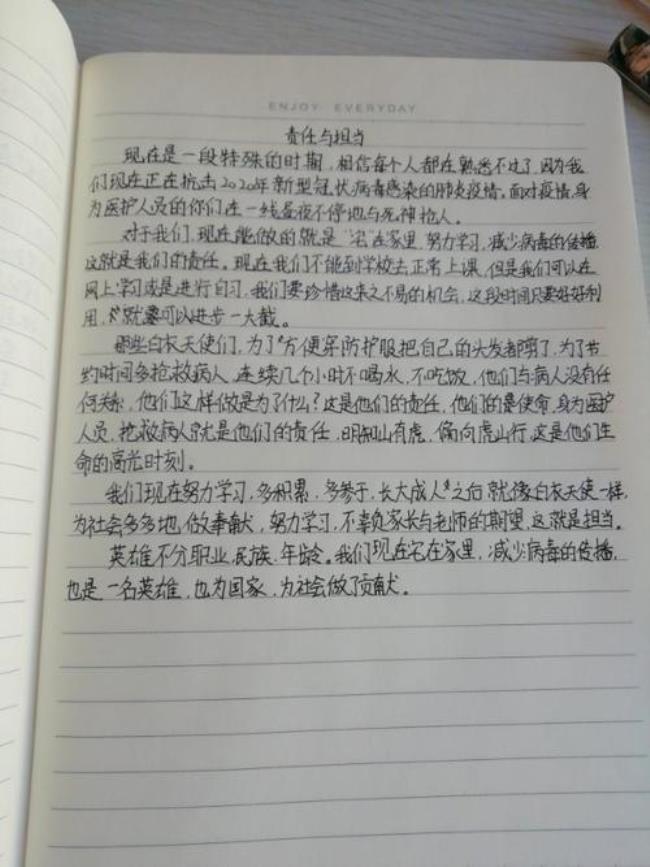 ENJOY EVERYDAY
责任与担当
现在是一段特殊的时期，相信每个人都在熟悉不过了，因为我
们现在正在抗击2020年新型冠状病毒感染的肺炎疫情。面对疫情，身
为医护人员的你们在一线昼夜不停地与死神抢人。
对于我们，现在能做的就是“宅”在家里，努力学习，减少病毒的传播，
这就是我们的责任。现在我们不能到学校去正常上课，但是我们可以在
网上学习或是进行自习，我们要珍惜这来之不易的机会，这段时间只要好好利
用，就可以进步一大截。
那些白衣天使们，为了方便穿防护服把自己的头发都剪了，为了节
约时间多抢救病人，连续几个小时不喝水，不吃饭，他们与病人没有任
何关系，他们这样做是为了什么？这是他们的责任，他们的使命，身为医护
人员，抢救病人就是他们的责任，明知山有虎，偏向虎山行，这是他们生
命的高光时刻。
我们现在努力学习，多积累，多参于，长大成人之后就像白衣天使一样，
为社会多多地做奉献，努力学习，不辜负家长与老师的期望，这就是担当。
英雄不分职业、民族、年龄。我们现在宅在家里，减少病毒的传播，
也是一名英雄，也为国家，为社会做了贡献。